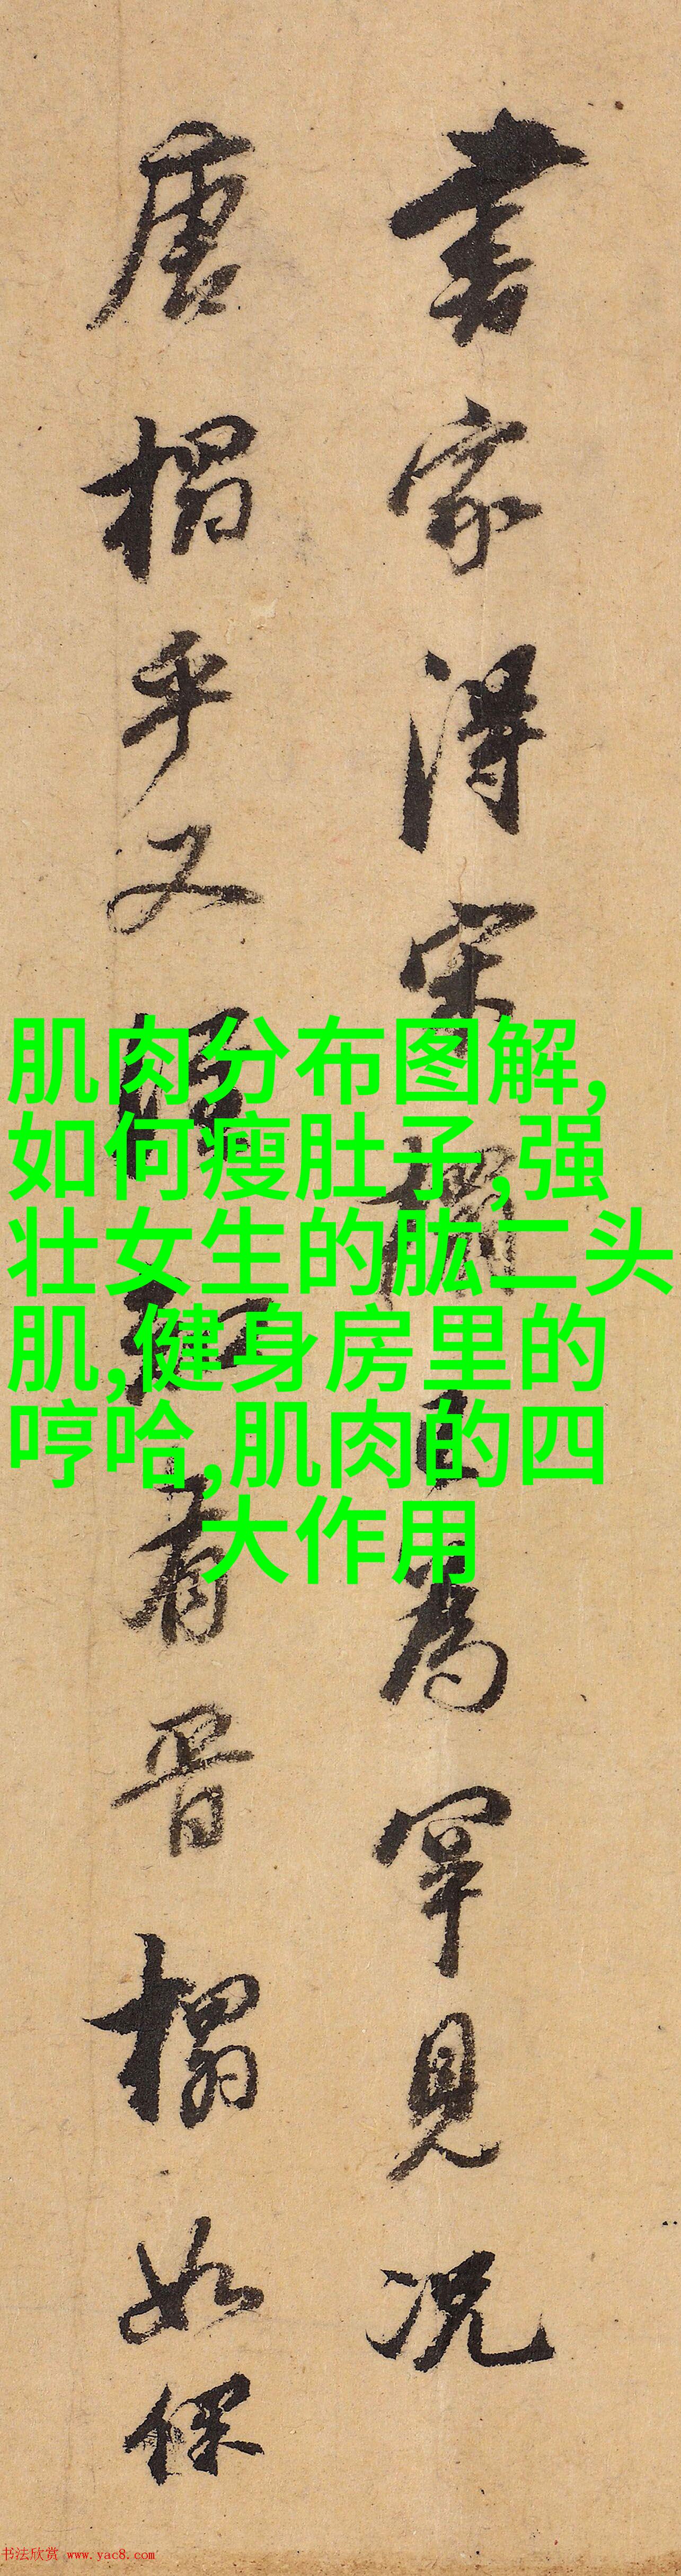 書家得宋榻已為罕見況
唐榻乎又有晋榻如保
肌肉分布图解,
如何瘦肚子,强
壮女生的肱二头
肌,健身房里的
哼哈,肌肉的四
大作用
书法欣赏 www.yac8.com